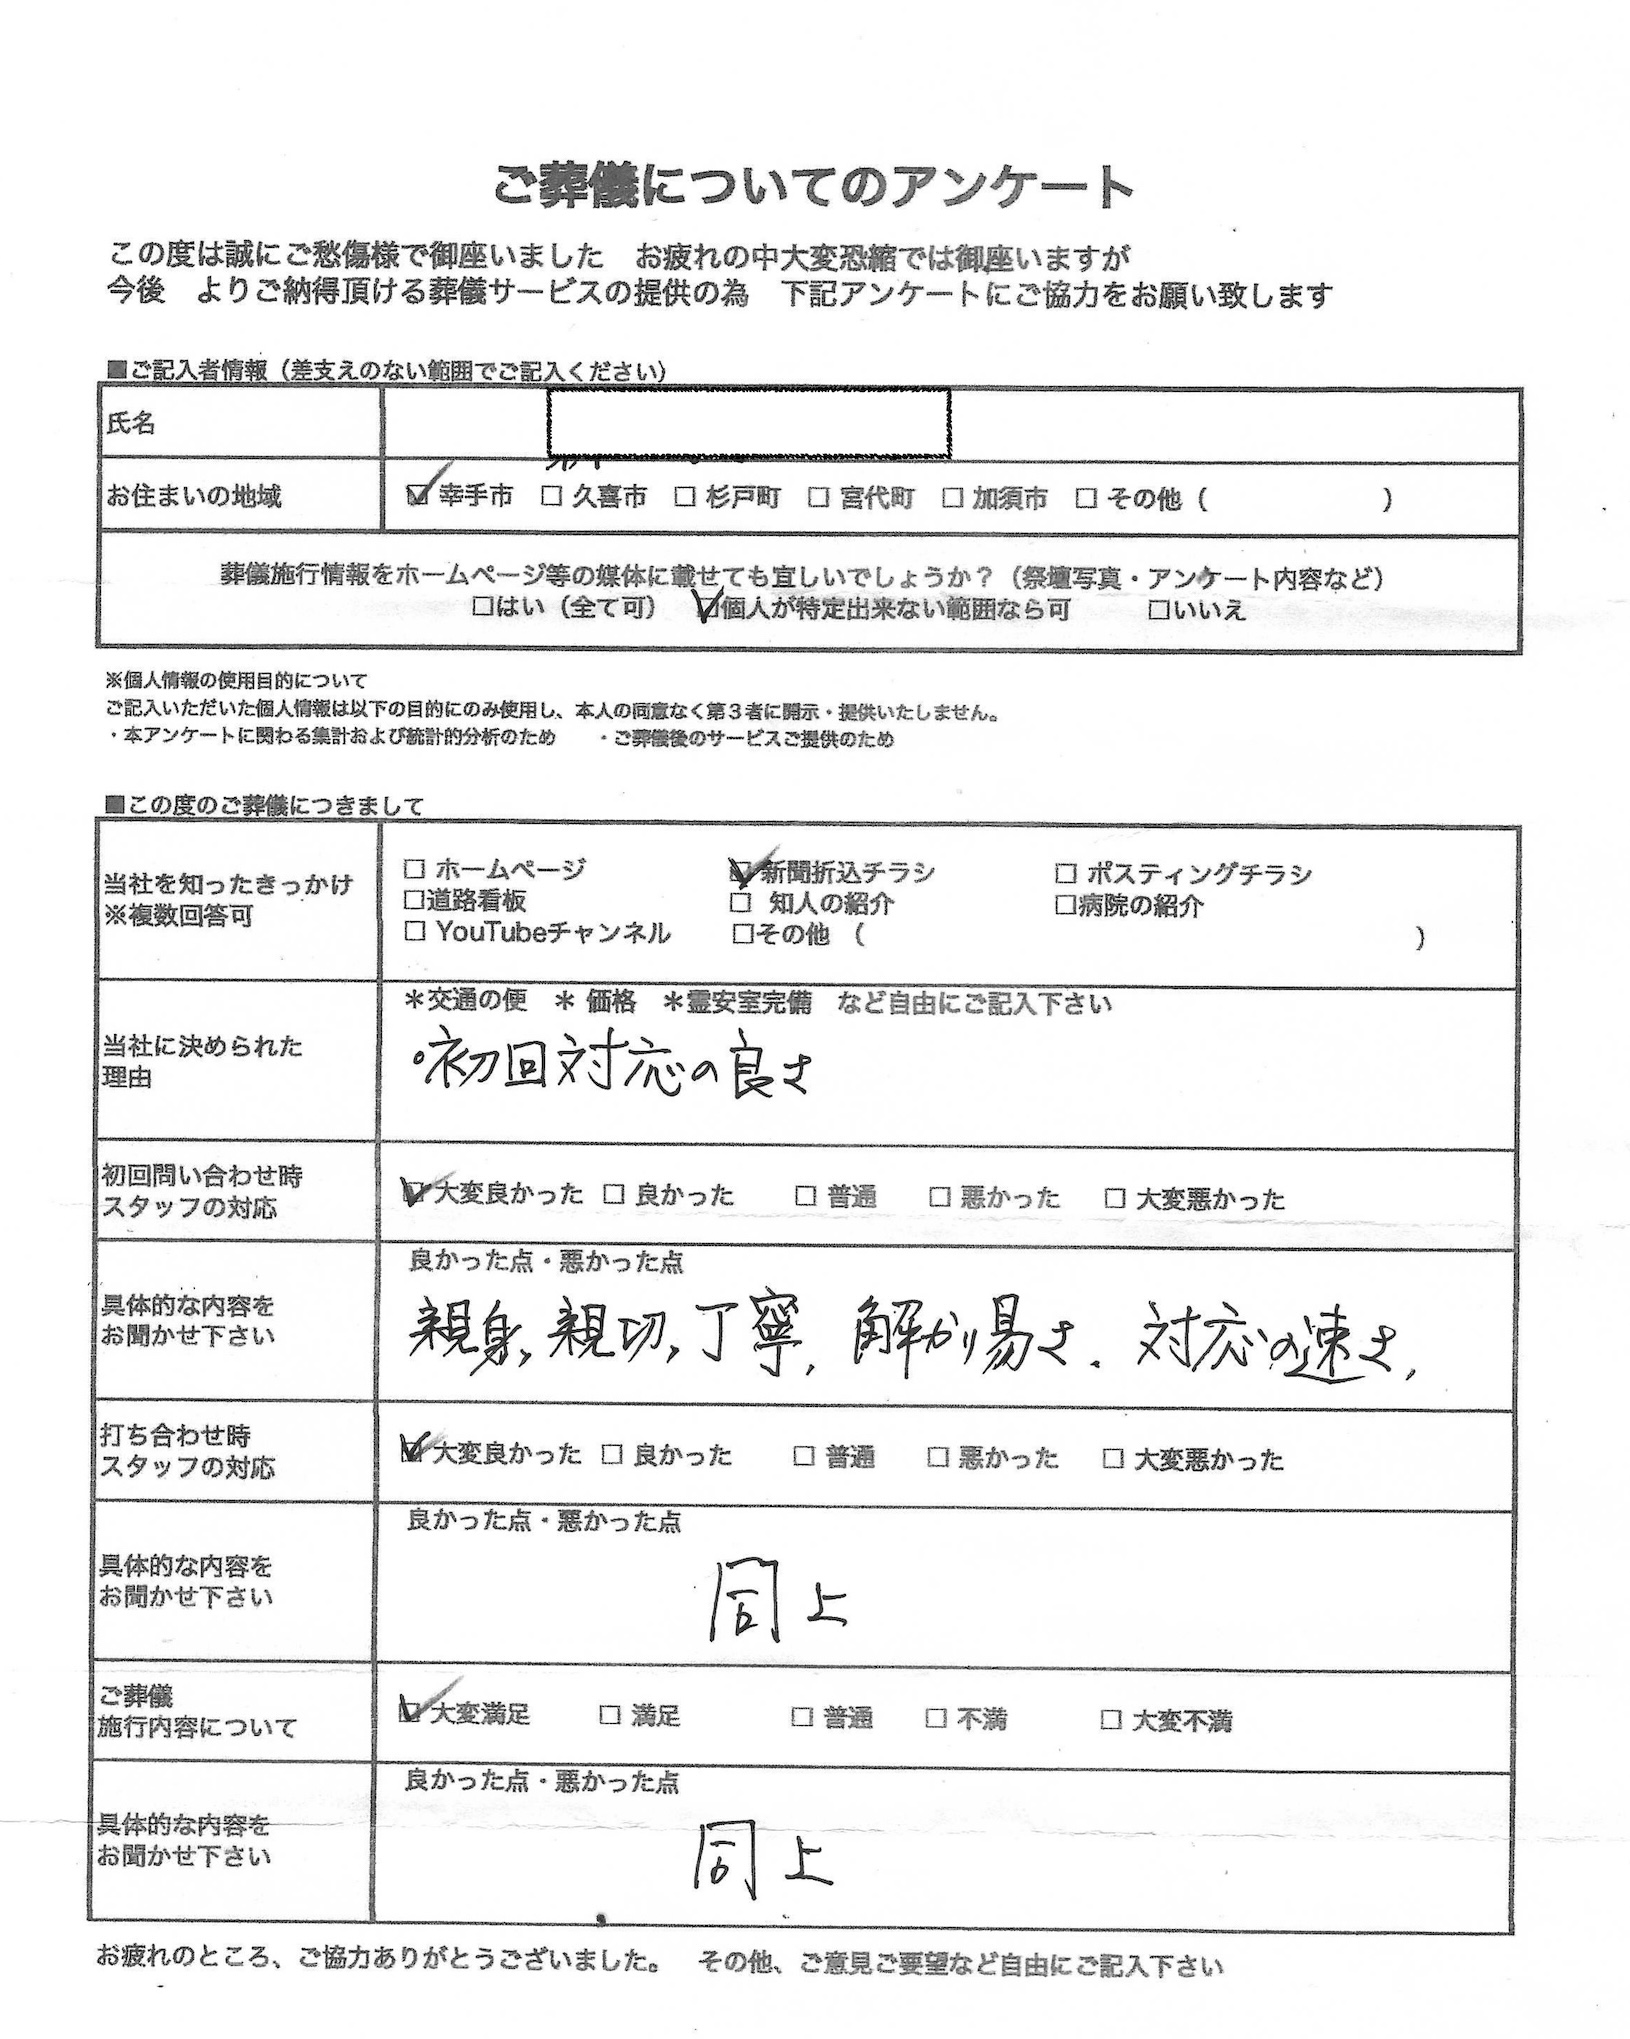 ご葬儀についてのアンケート
この度は誠にご愁傷様で御座いました　お疲れの中大変恐縮では御座いますが
今後　よりご納得頂ける葬儀サービスの提供の為　下記アンケートにご協力をお願い致します
■ご記入者情報（差支えのない範囲でご記入ください）
氏名
お住まいの地域　☑ 幸手市　☐ 久喜市　☐ 杉戸町　☐ 宮代町　☐ 加須市　☐ その他（　　　　　　）
葬儀施行情報をホームページ等の媒体に載せても宜しいでしょうか？（祭壇写真・アンケート内容など）
☐はい（全て可）　☑個人が特定出来ない範囲なら可　☐いいえ
※個人情報の使用目的について
ご記入いただいた個人情報は以下の目的にのみ使用し、本人の同意なく第３者に開示・提供いたしません。
・本アンケートに関わる集計および統計的分析のため　・ご葬儀後のサービスご提供のため
■この度のご葬儀につきまして
当社を知ったきっかけ
※複数回答可
☐ ホームページ　☑ 新聞折込チラシ　☐ ポスティングチラシ
☐道路看板　☐ 知人の紹介　☐病院の紹介
☐ YouTubeチャンネル　☐その他（　　　　　　）
当社に決められた
理由
＊交通の便　＊ 価格　＊霊安室完備　など自由にご記入下さい
・初回対応の良さ
初回問い合わせ時
スタッフの対応
☑ 大変良かった　☐ 良かった　☐ 普通　☐ 悪かった　☐ 大変悪かった
具体的な内容を
お聞かせ下さい
良かった点・悪かった点
親身、親切、丁寧、解かり易さ、対応の速さ、
打ち合わせ時
スタッフの対応
☑ 大変良かった　☐ 良かった　☐ 普通　☐ 悪かった　☐ 大変悪かった
具体的な内容を
お聞かせ下さい
良かった点・悪かった点
同上
ご葬儀
施行内容について
☑ 大変満足　☐ 満足　☐ 普通　☐ 不満　☐ 大変不満
具体的な内容を
お聞かせ下さい
良かった点・悪かった点
同上
お疲れのところ、ご協力ありがとうございました。　その他、ご意見ご要望など自由にご記入下さい